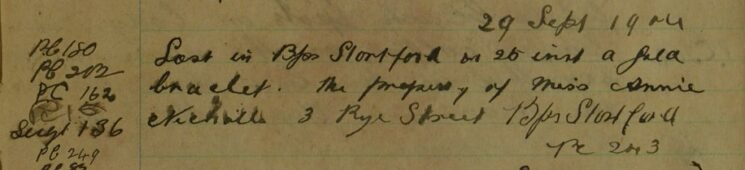 29 Sept 1904
PC 180
Lost in Bps Stortford on 25 inst a gold
PC 202
bracelet. the property of Miss Annie
PC 162
Nicholls 3 Rye Street Bps Stortford
Sergt 136
PC 249
Pc 203